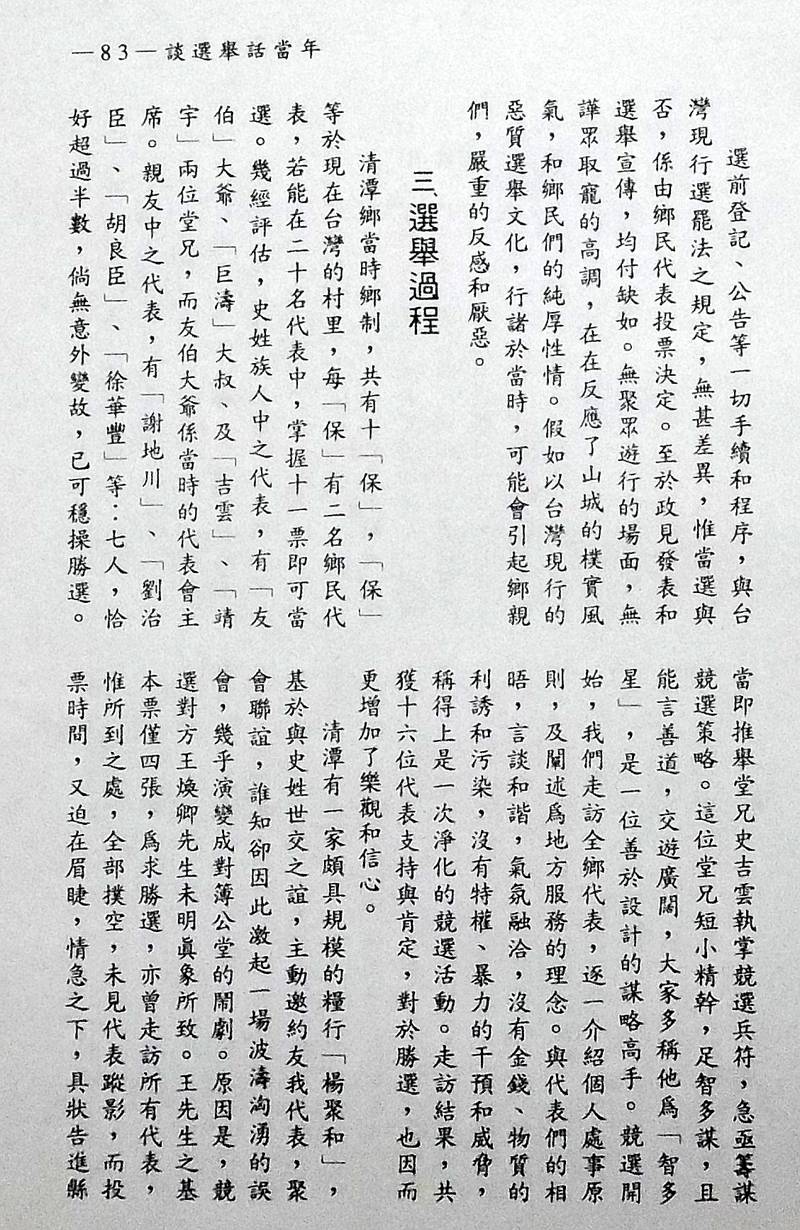 —83—談選舉話當年
選前登記、公告等一切手續和程序，與台
灣現行選罷法之規定，無甚差異，惟當選與
否，係由鄉民代表投票決定。至於政見發表和
選舉宣傳，均付缺如。無聚眾遊行的場面，無
譁眾取寵的高調，在在反應了山城的樸實風
氣，和鄉民們的純厚性情。假如以台灣現行的
惡質選舉文化，行諸於當時，可能會引起鄉親
們，嚴重的反感和厭惡。
三、選舉過程
清潭鄉當時鄉制，共有十「保」，「保」
等於現在台灣的村里，每「保」有二名鄉民代
表，若能在二十名代表中，掌握十一票即可當
選。幾經評估，史姓族人中之代表，有「友
伯」大爺、「巨濤」大叔、及「吉雲」、「靖
宇」兩位堂兄，而友伯大爺係當時的代表會主
席。親友中之代表，有「謝地川」、「劉治
臣」、「胡良臣」、「徐華豐」等：七人，恰
好超過半數，倘無意外變故，已可穩操勝選。
當即推舉堂兄史吉雲執掌競選兵符，急亟籌謀
競選策略。這位堂兄短小精幹，足智多謀，且
能言善道，交遊廣闊，大家多稱他爲「智多
星」，是一位善於設計的謀略高手。競選開
始，我們走訪全鄉代表，逐一介紹個人處事原
則，及闡述爲地方服務的理念。與代表們的相
晤，言談和諧，氣氛融洽，沒有金錢、物質的
利誘和污染，沒有特權、暴力的干預和威脅，
稱得上是一次淨化的競選活動。走訪結果，共
獲十六位代表支持與肯定，對於勝選，也因而
更增加了樂觀和信心。
清潭有一家頗具規模的糧行「楊聚和」，
基於與史姓世交之誼，主動邀約友我代表，聚
會聯誼，誰知卻因此激起一場波濤洶湧的誤
會，幾乎演變成對簿公堂的鬧劇。原因是，競
選對方王煥卿先生未明眞象所致。王先生之基
本票僅四張，爲求勝選，亦曾走訪所有代表，
惟所到之處，全部撲空，未見代表蹤影，而投
票時間，又迫在眉睫，情急之下，具狀告進縣